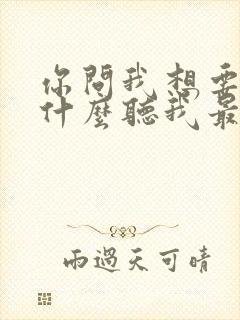 你問我想要
什麼聽我最
雨過天可晴